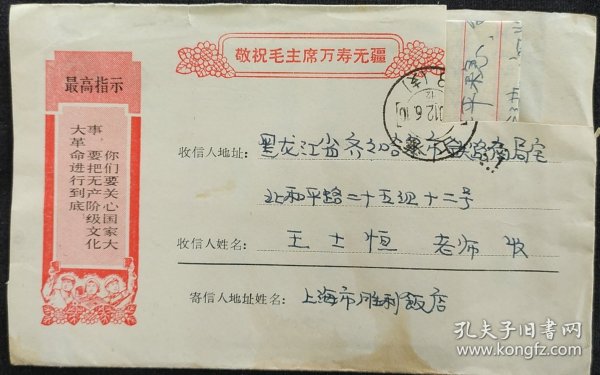 敬祝毛主席万寿无疆
最高指示
你们要关心国家大
事，要把无产阶级文化
大革命进行到底
收信人地址：黑龙江省齐齐哈尔市铁路南局宅
北和平路二十五组十二号
收信人姓名：王士恒 老师 收
寄信人地址姓名：上海市胜利饭店
孔夫子旧书网
www.kongfz.com